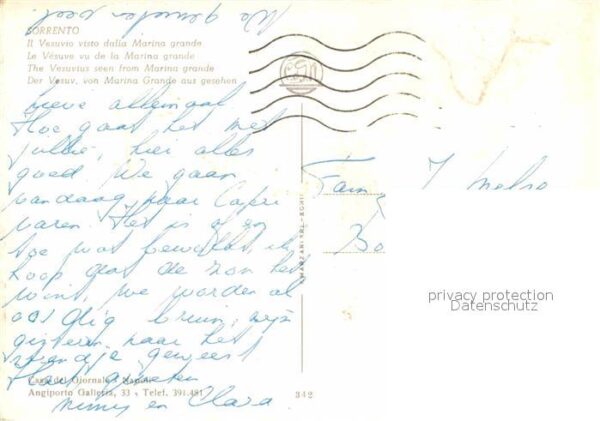 We genieten veel.
SORRENTO
Il Vesuvio visto dalla Marina grande
Le Vésuve vu de la Marina grande
The Vesuvius seen from Marina grande
Der Vesuv, von Marina Grande aus gesehen
Lieve allemaal
Hoe gaat het met
jullie, hier alles
goed. We gaan
vandaag naar Capri
varen. Het is af en
toe wat bewolkt, ik
hoop dat de zon het
wint, we worden al
aardig bruin, zijn
gisteren naar het
strandje geweest
Hart. groeten
en Clara
Fam. J
Bo
Casa del Giornale - Napoli
Angiporto Galleria, 33 - Telef. 391.481
342
privacy protection
Datenschutz